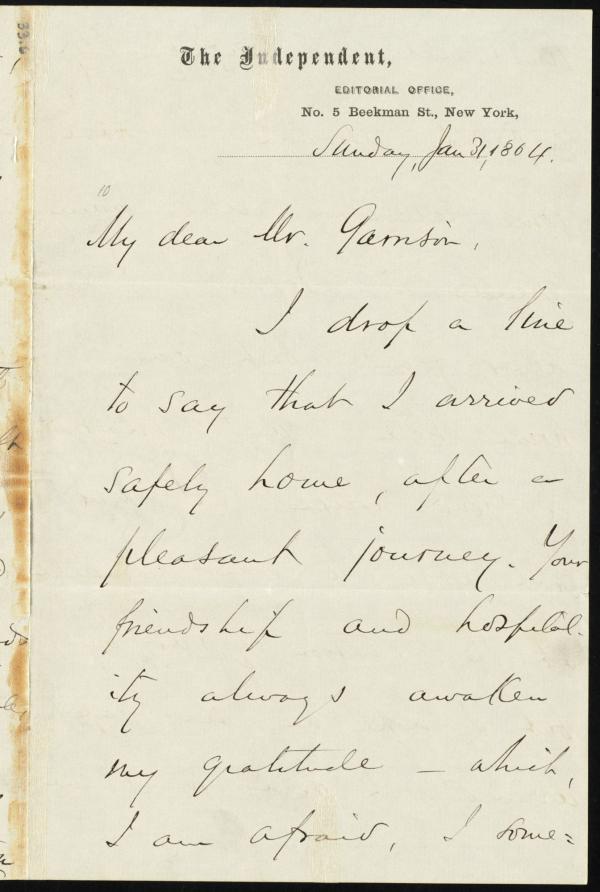 The Independent,
EDITORIAL OFFICE,
No. 5 Beekman St., New York,
Sunday, Jan 31, 1864.
10
My dear Mr. Garrison,
I drop a line
to say that I arrived
safely home, after a
pleasant journey. Your
friendship and hospital-
ity always awaken
my gratitude — which,
I am afraid, I some=